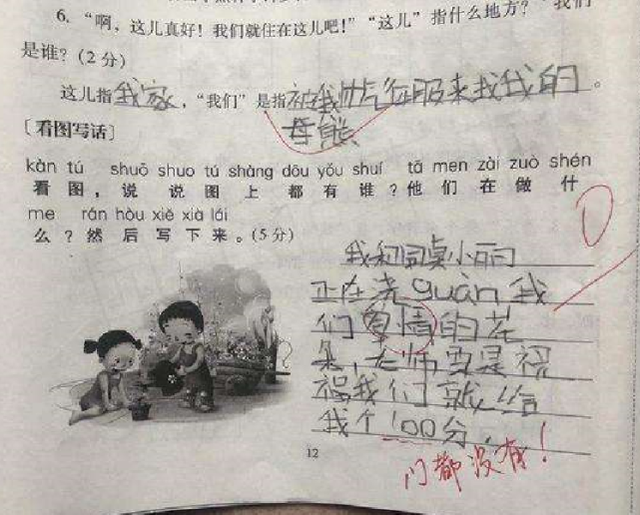 6. “啊，这儿真好！我们就住在这儿吧！”“这儿”指什么地方？“我们”
是谁？(2分)
这儿指我家，“我们”是指被我帅气征服来找我的。
母熊
[看图写话]
kàn tú shuō shuo tú shàng dōu yǒu shuí tā men zài zuò shén
看图，说说图上都有谁？他们在做什
me rán hòu xiě xià lái
么？然后写下来。(5分)
0
我和同桌小丽
正在浇guàn我
们爱情的花
朵，老师要是祝
福我们就给
我个100分，
12
门都没有！